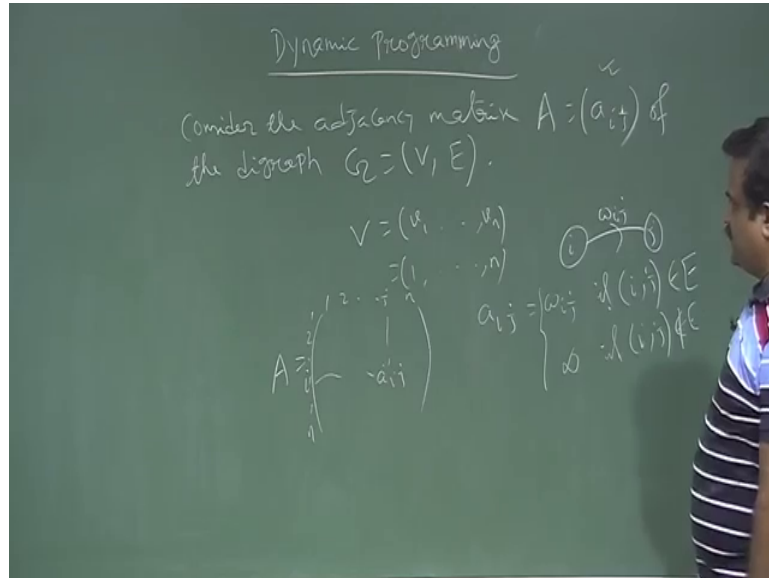 Dynamic Programming
Consider the adjacency matrix A = (aij) of
the digraph G = (V, E).
V = (v1, ..., vn)
= (1, ..., n)
i wij j
aij = { wij if (i, j) ∈ E
∞ if (i, j) ∉ E
1 2 ... j n
1
2
A = i aij
n